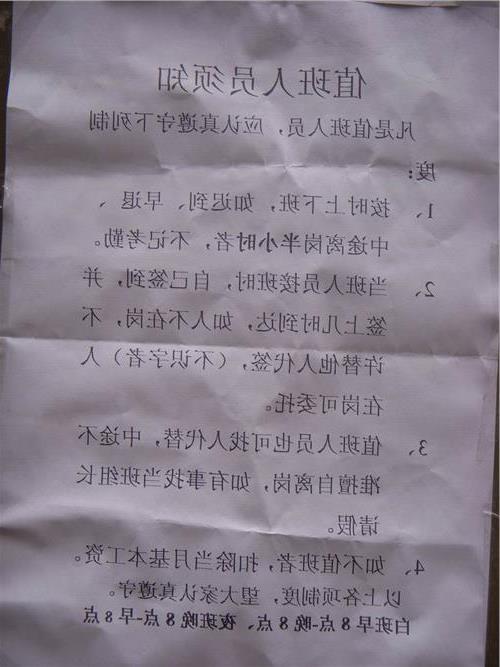 值班人员须知
凡是值班人员，应认真遵守下列制
度：
1、按时上下班，如迟到、早退、
中途离岗半小时者，不记考勤。
2、当班人员接班时，自己签到，并
签上几时到达，如人不在岗，不
许替他人代签，（不识字者）人
在岗可委托。
3、值班人员也可找人代替，中途不
准擅自离岗，如有事找当班组长
请假。
4、如不值班者，扣除当月基本工资。
以上各项制度，望大家认真遵守。
白班早8点-晚8点、夜班晚8点-早8点